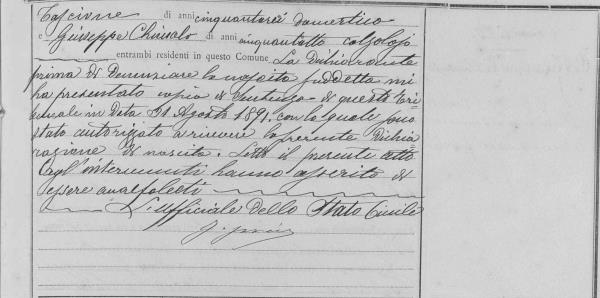 Tascione di anni cinquantasei domestico
e Giuseppe Chiusolo di anni cinquantotto calzolajo
entrambi residenti in questo Comune. La Dichiarante
prima di denunziare la nascita suddetta mi
ha presentato copia di sentenza di questo Tri
bunale in data 31 Agosto 1891, con la quale sono
stato autorizzato a ricevere la presente Dichia
razione di nascita. Letto il presente atto
agl'intervenuti hanno asserito di
essere analfabeti
L'uffiziale dello Stato Civile